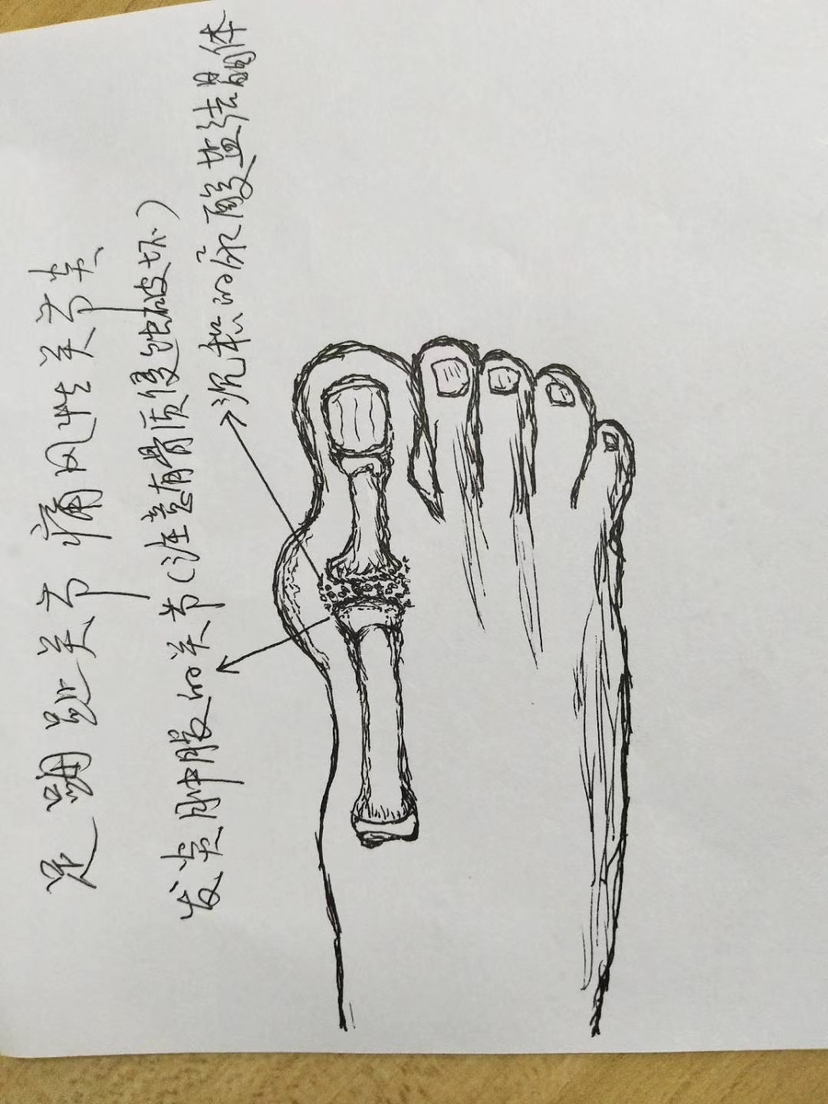 足踇趾关节痛风性关节炎
发炎肿胀的关节(注意有骨质侵蚀破坏)
沉积的尿酸盐结晶体